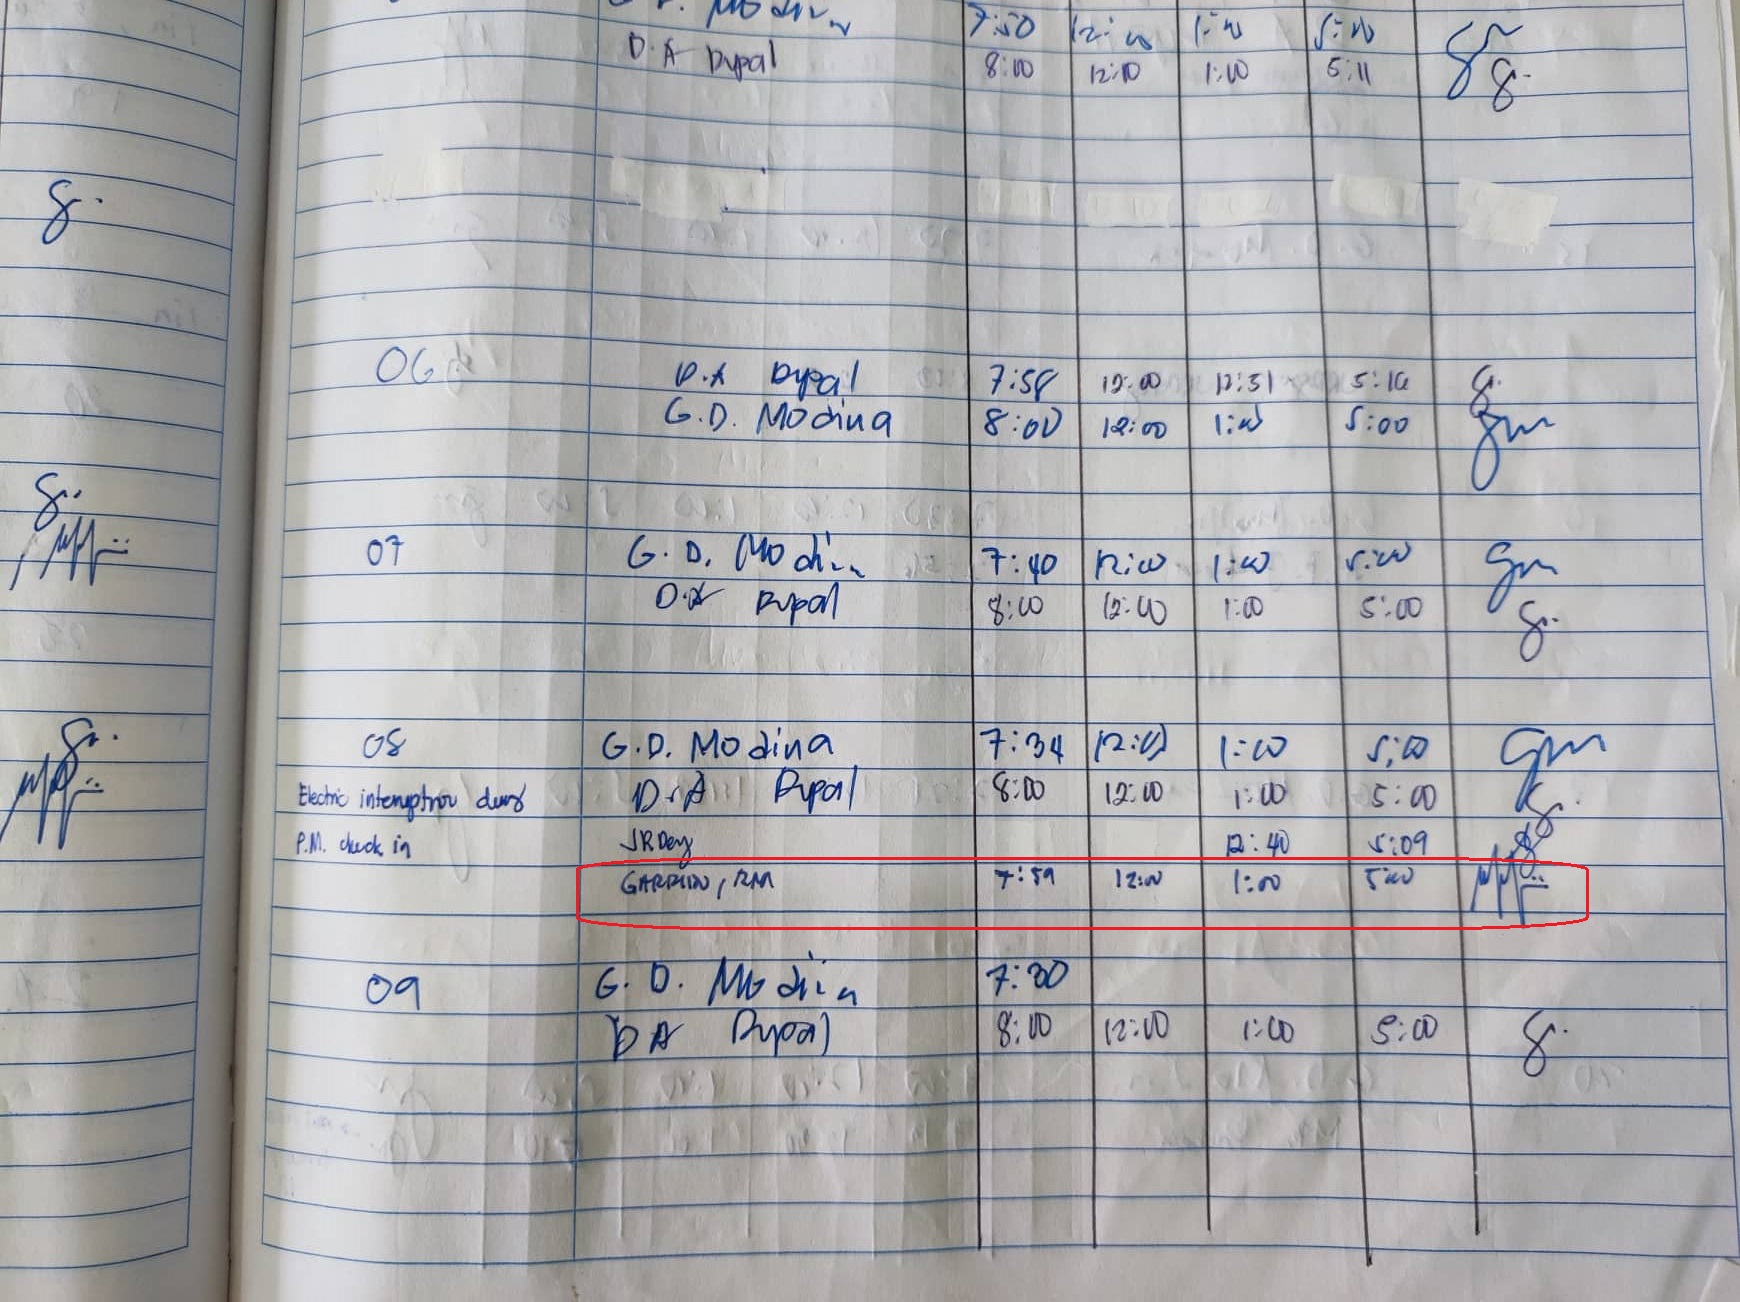 7:50
D.A Dypal 8:00 12:10 1:00 5:11
06 D.A Dypal 7:58 12:00 12:51 5:16
G.D. Modina 8:00 12:00 1:00 5:00
07 G.D. Modina 7:40 12:00 1:00 5:00
D.A Dypal 8:00 12:00 1:00 5:00
08 G.D. Modina 7:34 12:00 1:00 5:00
Electric interruption D.A Dypal 8:00 12:00 1:00 5:00
P.M. check in JRDey 12:40 5:09
RM 7:59 12:00 1:00 5:00
09 G.D. Modina 7:30
DA Dypal 8:00 12:00 1:00 5:00